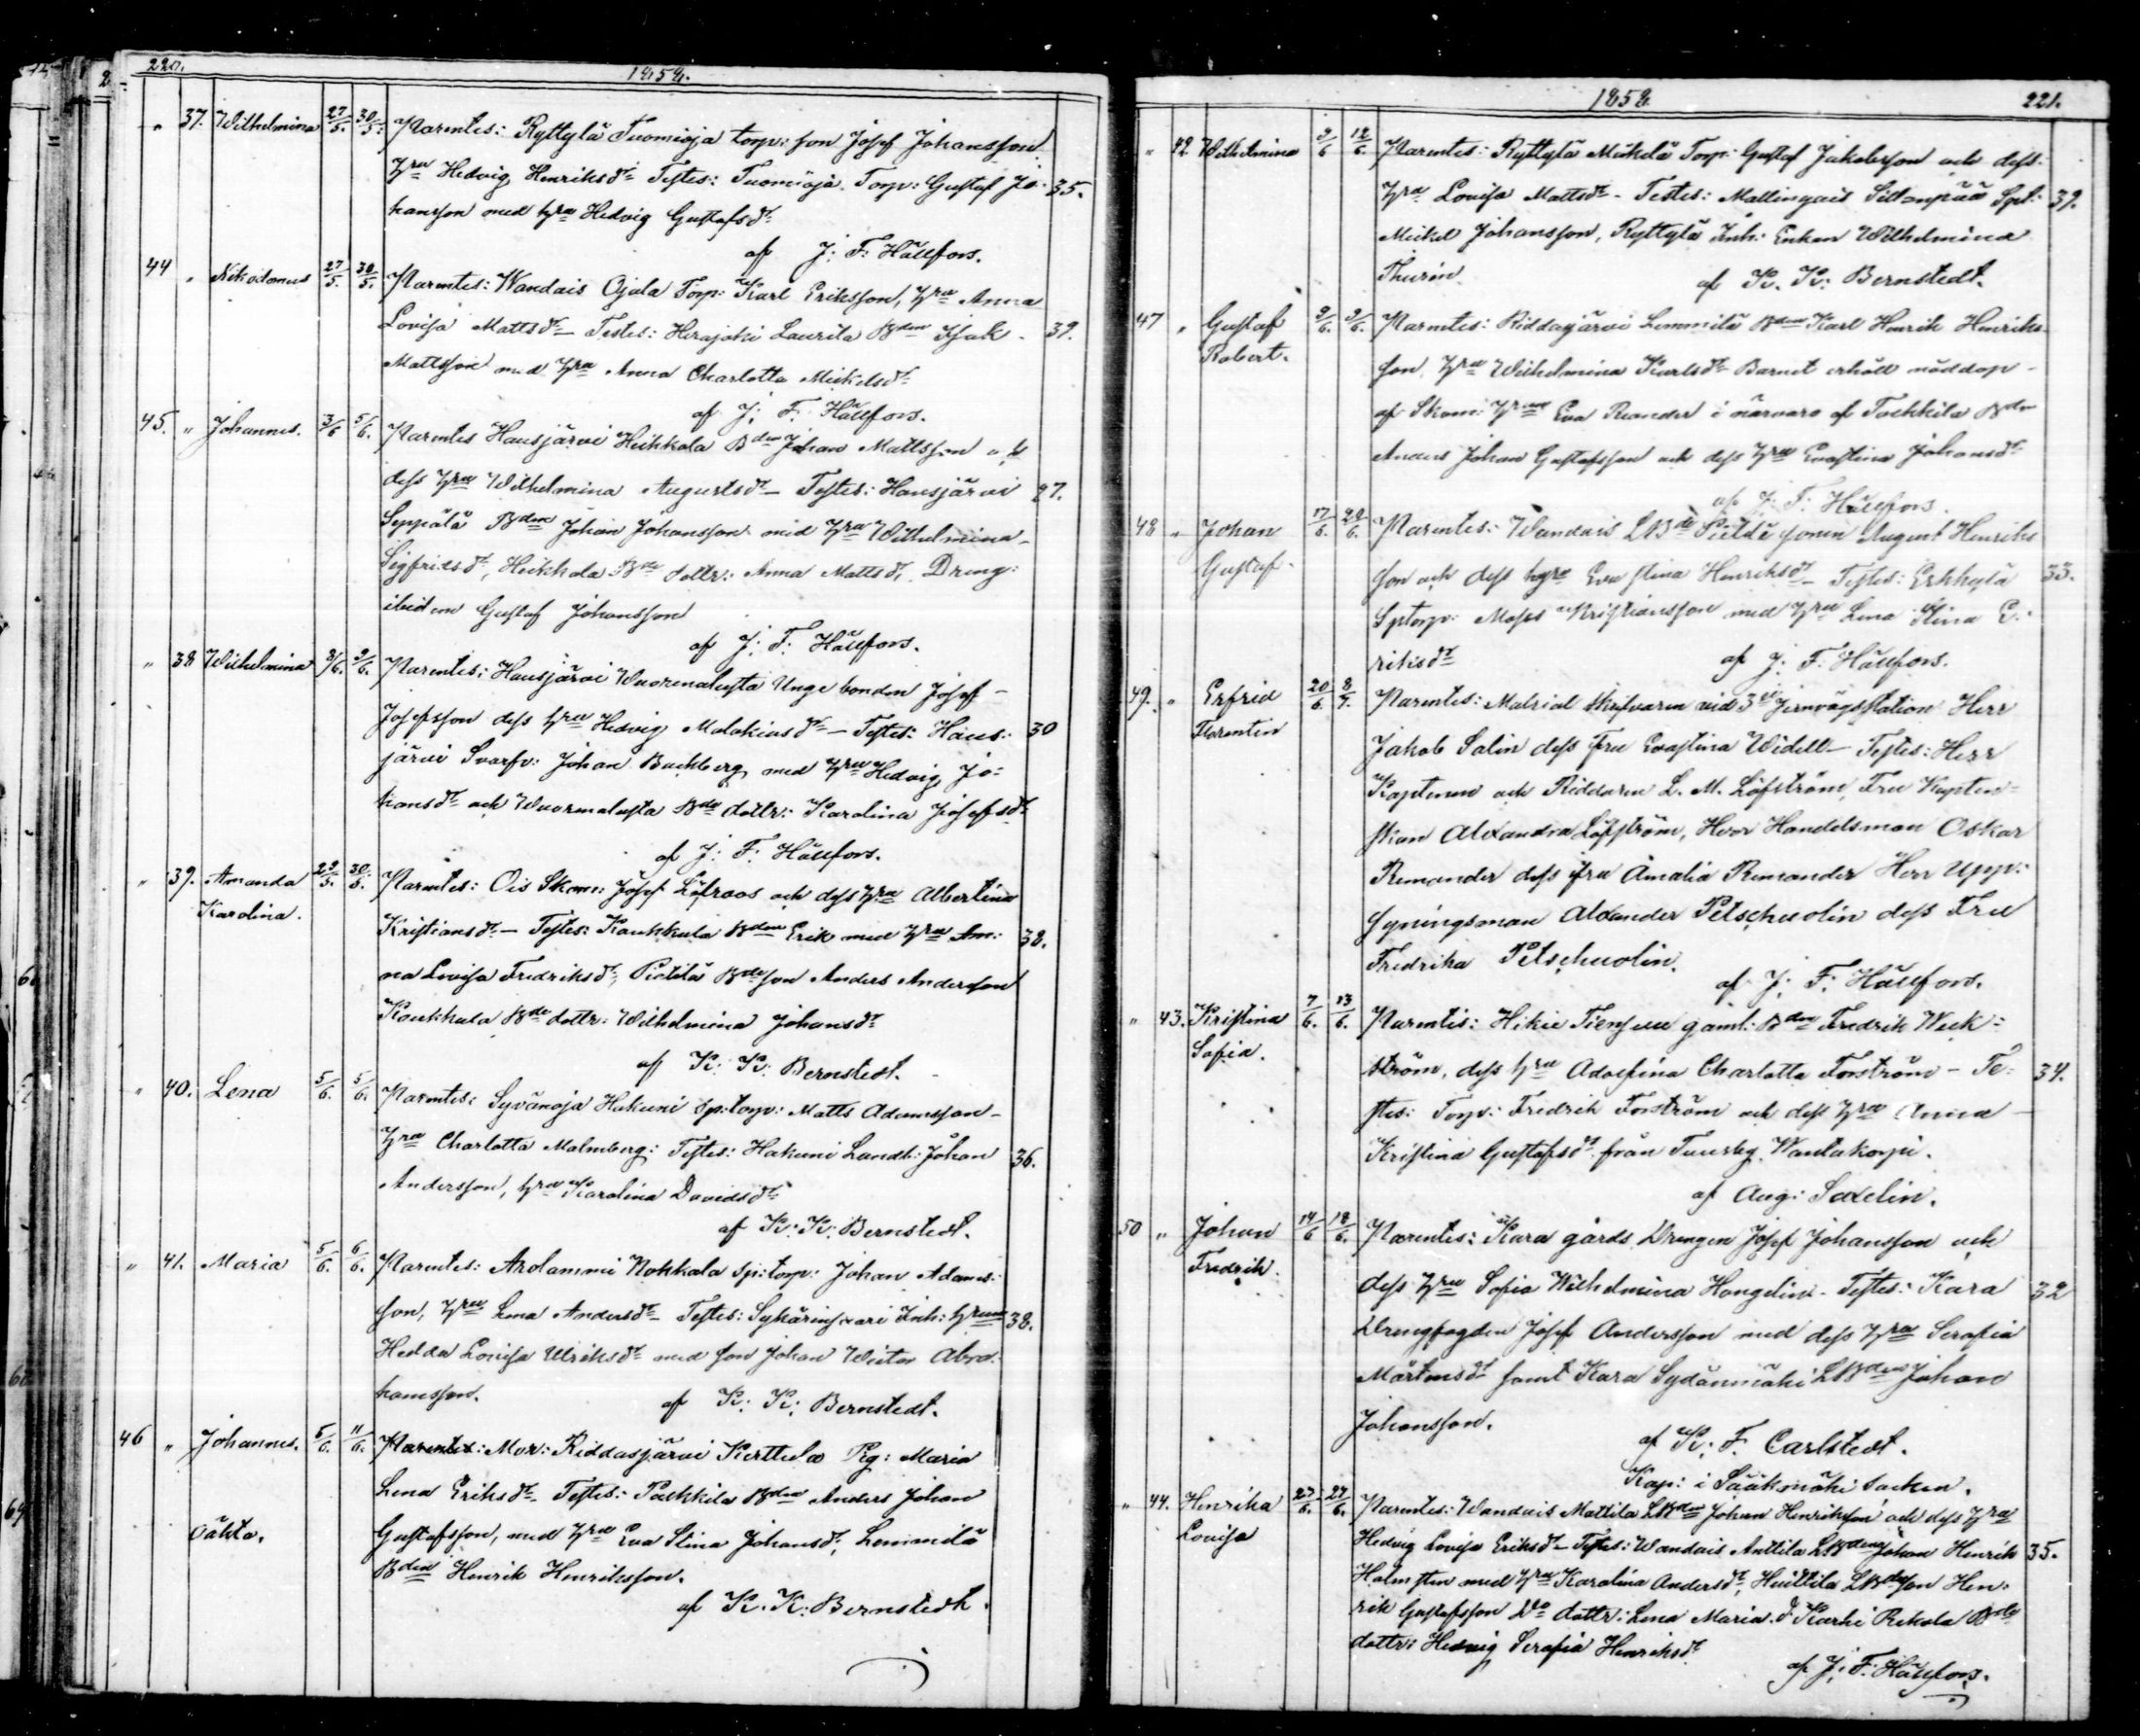 220.
1858.
" 37. Wilhelmina 27/5. 30/5. Parentes: Ryttylä Tuomioja torp: son Josef Johansson
hru Hedvig Henriksdr Testes: Tuomioja Torp: Gustaf Jo- 35.
hansson med hru Hedvig Gustafsdr
af J: F: Hällfors.
44 " Nikodemus 27/5. 30/5. Parentes: Wandais Ojala Torp: Karl Eriksson, hru Anna
Lovisa Mattsdr – Testes: Herajoki Laurila Bden Isak 39.
Mattsson med hru Anna Charlotta Mickelsdr
af J: F: Hällfors.
45. " Johannes. 3/6 5/6. Parentes Hausjärvi Heikkola Bden Johan Mattsson och
dess hru Wilhelmina Augustsdr – Testes: Hausjärvi 27.
Seppälä Bden Johan Johansson med hru Wilhelmina
Sigfridsdr, Heikkola Bde dottr: Anna Mattsdr, Dreng:
ibidem Gustaf Johansson
af J: F: Hällfors.
" 38 Wilhelmina 3/6. 5/6. Parentes: Hausjärvi Wuorenalusta Unge bonden Josef
Josefsson dess hru Hedvig Malakiasdr – Testes: Haus- 30
järvi Svarfv: Johan Backberg med hru Hedvig Jo-
hansdr och Wuorenalusta Bde dottr: Karolina Josefsdr
af J: F: Hällfors.
" 39. Amanda 29/5. 30/5. Parentes: Ois Skom: Josef Löfroos och dess hru Albertina
Karolina. Kristiansdr – Testes: Koukkula Bden Erik med hru An- 38.
na Lovisa Fredriksdr, Pietilä Bde son Anders Andersson
Koukkula Bde dottr: Wilhelmina Johansdr
af K: K: Bernstedt.
" 40. Lena 5/6. 5/6. Parentes: Syvänoja Hakuni sp:torp: Matts Adamsson
hru Charlotta Malmberg: Testes: Hakuni Landb: Johan 36.
Andersson, hru Karolina Davidsdr
af K: K: Bernstedt.
" 41. Maria 5/6. 6/6. Parentes: Arolammi Nokkala sp:torp: Johan Adams-
son, hru Lena Andersdr – Testes: Inh: hrun 38.
Hedda Lovisa Ulriksdr med son Johan Wictor Abra-
hamsson.
af K: K: Bernstedt.
46 " Johannes. 5/6. 11/6. Parentes: Mor: Riddasjärvi Kerttula Pig: Maria
Lena Eriksdr. Testes: Pachkila Bden Anders Johan
oäkta. Gustafsson, med hru Eva Stina Johansdr, Lemmilä
Bden Henrik Henriksson.
af K. K: Bernstedt.
1858
221.
" 42 Wilhelmina 9/6 12/6. Parentes: Ryttylä Mickelä Torp: Gustaf Jakobsson och dess
hru Lovisa Mattsdr – Testes: Mallingais Sillanpää Spl: 39.
Mickel Johansson, Ryttylä Inh: Enkan Wilhelmina
Thurén.
af K. K: Bernstedt.
47 " Gustaf 9/6. 9/6. Parentes: Riddasjärvi Lemmilä Bden Karl Henrik Henriks-
Robert. son, hru Wilhelmina Karlsdr Barnet erhöll nöddop
af Skom: hrun Eva Reander i närvaro af Bden
Anders Johan Gustafsson och dess hru Evastina Johansdr
af J: F: Hällfors.
48 " Johan 17/6. 20/6. Parentes: Wandais LBde sonen August Henriks
Gustaf. son och dess hru Eva Stina Henriksdr – Testes: Erkkylä 33.
Sptorp: Moses Kristiansson med hru Lena Stina E-
riksdr
af J: F: Hällfors.
49. " Erfrid 20/6. 8/7. Parentes: Matrial skrifvaren vid 3de Jernvägsstation Herr
Florentin Jakob Salin dess Fru Evastina Widell – Testes: Herr
Kaptenen och Riddaren L. M. Löfström, Fru Kapten-
skan Alexandra Löfström, Herr Handelsman Oskar
Remander dess fru Amalia Remander Herr Upp-
syningsman Alexander Petschuolin dess Fru
Fredrika Petschuolin.
af J: F: Hällfors.
" 43. Kristina 7/6. 13/6. Parentes: Hikie gaml: Bden Fredrik Weck-
Sofia. ström, dess hru Adolfina Charlotta Forström – Te- 34.
stes: Torp: Fredrik Forström och dess hru Anna
Kristina Gustafsdr från Tuusby Wantakorpi.
af Aug: Saxelin.
50 " Johan 14/6 18/6. Parentes: Kara gårds Drengen Josef Johansson och
Fredrik. dess hru Sofia Wilhelmina Hongelin – Testes: Kara 32
Drengfogden Josef Andersson med dess hru Serafia
Mårtensdr samt Kara Sydänmäki LBden Johan
Johansson.
af K: F. Carlstedt.
Kap: i Sääksmäki socken.
" 44. Henrika 23/6. 27/6. Parentes: Wandais Mattila LBden Johan Henriksson och dess hru
Lovisa Hedvig Lovisa Eriksdr – Testes: Wandais Anttila LBden Johan Henrik 35.
Holmsten med hru Karolina Andersdr, Huittila LBde son Hen-
rik Gustafsson Do dottr: Lena Maria Karhi Rekola Bde
dottr: Hedvig Serafia Henriksdr
af J: F: Hällfors.